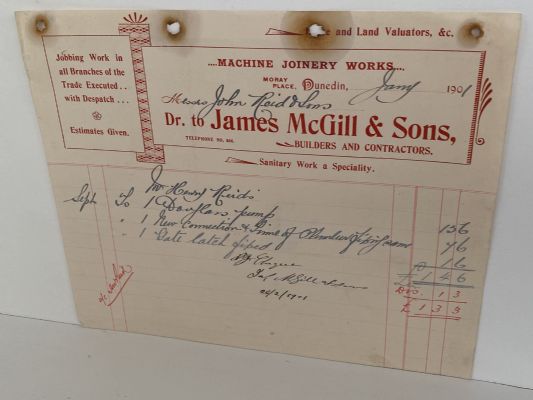 and Land Valuators, &c.
Jobbing Work in
all Branches of the
Trade Executed...
with Despatch...
Estimates Given.
....MACHINE JOINERY WORKS....
MORAY
PLACE,
Dunedin, Jany 1901
Messrs John Reid & Sons
Dr. to James McGill & Sons,
TELEPHONE NO.
BUILDERS AND CONTRACTORS.
Sanitary Work a Speciality.
Mr Henry Reids
Sept To 1 Douglas pump 15 6
" 1 New Connection & Time of Plumber fixing same 7 6
" 1 Gate latch fixed 1 6
£ 1 4 6
Dis. 1 3
£ 1 3 3
Jas McGill & Sons
26/2/1901